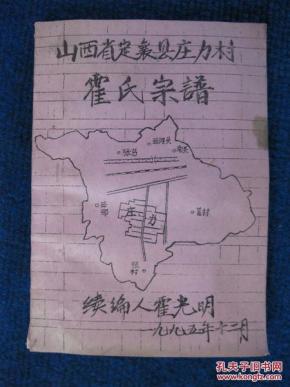 山西省定襄县庄力村
霍氏宗譜
庄力
续编人霍光明
一九九五年十二月
孔夫子旧书网